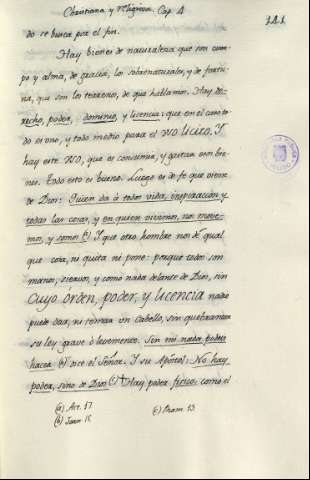 Christiana y Religiosa. Cap. 4
141
do se busca por el fin.
Hay bienes de naturaleza que son cuer-
po y alma, de gracia, los sobrenaturales, y de fortu-
na, que son los terrenos, de que hablamos. Hay de-
recho, poder, dominio, y licencia: que en el caso to-
do es uno, y todo medio para el uso licito. Y
hay este uso, que es consumir, y gastar esos bie-
nes. Todo esto es bueno. Luego es de fe que viene
de Dios: Quien da à todos vida, inspiracion y
todas las cosas, y en quien vivimos, nos move-
mos, y somos (a) Y que otro hombre nos dè qual
que cosa, ni quita ni pone: porque todos son
manos, siervos, y como nada delante de Dios, sin
cuyo orden, poder, y licencia nadie
puede dar, ni tomar un cabello, sin quebrantar
su ley grave ò levemente. Sin mi nada podeis
hacer (b) dice el Señor. Y su Apostol: No hay
poder, sino de Dios (c) Hay poder fisico: como el
(a) Act. 17.
(c) Rham. 13.
(b) Joan. 15